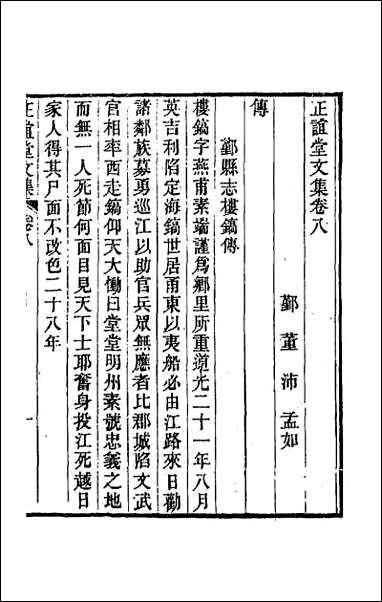 正誼堂文集卷八
鄞董沛孟如
傳
鄞縣志樓鎬傳
樓鎬字燕甫素端謹爲鄉里所重道光二十一年八月
英吉利陷定海鎬世居甬東以夷船必由江路來日勸
諸鄰族募勇巡江以助官兵眾無應者比郡城陷文武
官相率西走鎬仰天大慟曰堂堂明州素號忠義之地
而無一人死節何面目見天下士耶奮身投江死越日
家人得其尸面不改色二十八年
正誼堂文集 卷八 一